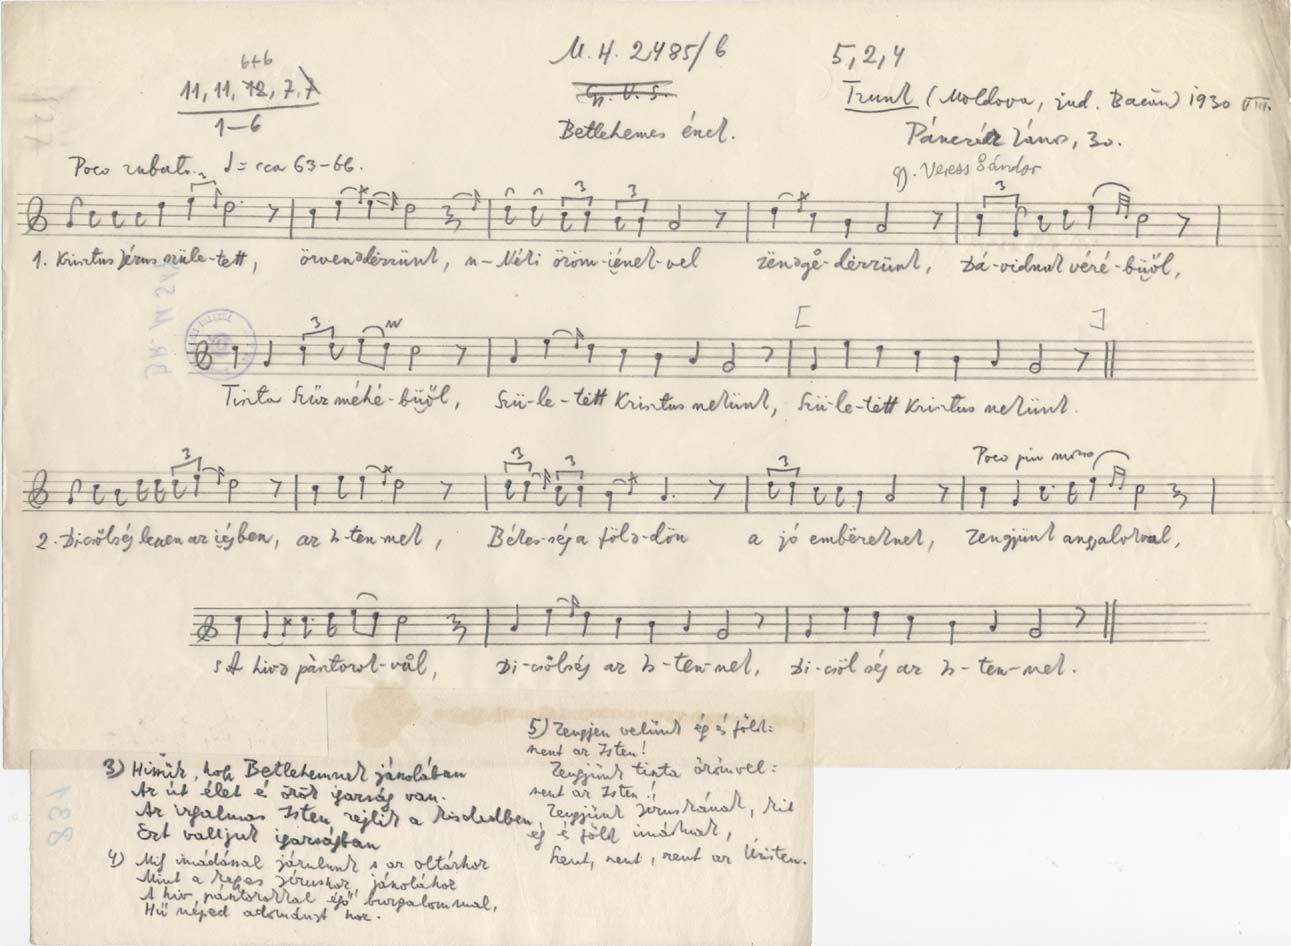 M. H. 2485/b
5, 2, 4
6+6
11, 11, 12, 7, 7
1–6
Gy. V. S.
Betlehemes ének.
Trunk (Moldova, jud. Bacău) 1930 VIII.
János, 30.
gy. Veress Sándor
Poco rubato. ♩= cca 63–66.
3 3 3 3
1. Krisztus Jézus szüle-tett, örvendëzzünk, n-Néki öröm-iének-vel zëngë-dëzzünk, Dá-vidnak véré-büől,
3
Tiszta Szűz méhé-büől, Szü-le-tëtt Krisztus nekünk, Szü-le-tëtt Krisztus nekünk.
Poco piu mosso
3 3 3 3
2. Dicsőlség lenen az iégben, az Is-ten-nek, Békes-ség a föld-dön a jó embëreknek, Zengjünk angyalokval,
S A hívő pásztorok-vál, Di-csőlség az Is-ten-nek, Di-csől ség az Is-ten-nek.
3) Hisszük, hogy Betlehemnek jászolában
Az út élet é örök igazság van.
Az irgalmas Isten rejlik a kisdedben,
Ezt valljuk igazságban
4) Míg imádásnal járulunk s az oltárhoz
Mint a Jézushoz, jászolához
A hív pásztorokkal égő buzgalommal,
Hű néped adományt hoz.
5) Zengjen velünk ég és föld:
szent az Isten!
Zengjünk tiszta örönvel:
szent az Isten!
Zengjünk Jézuskának, kit
ég é föld imádnak,
Szent, szent, szent az Úristen.